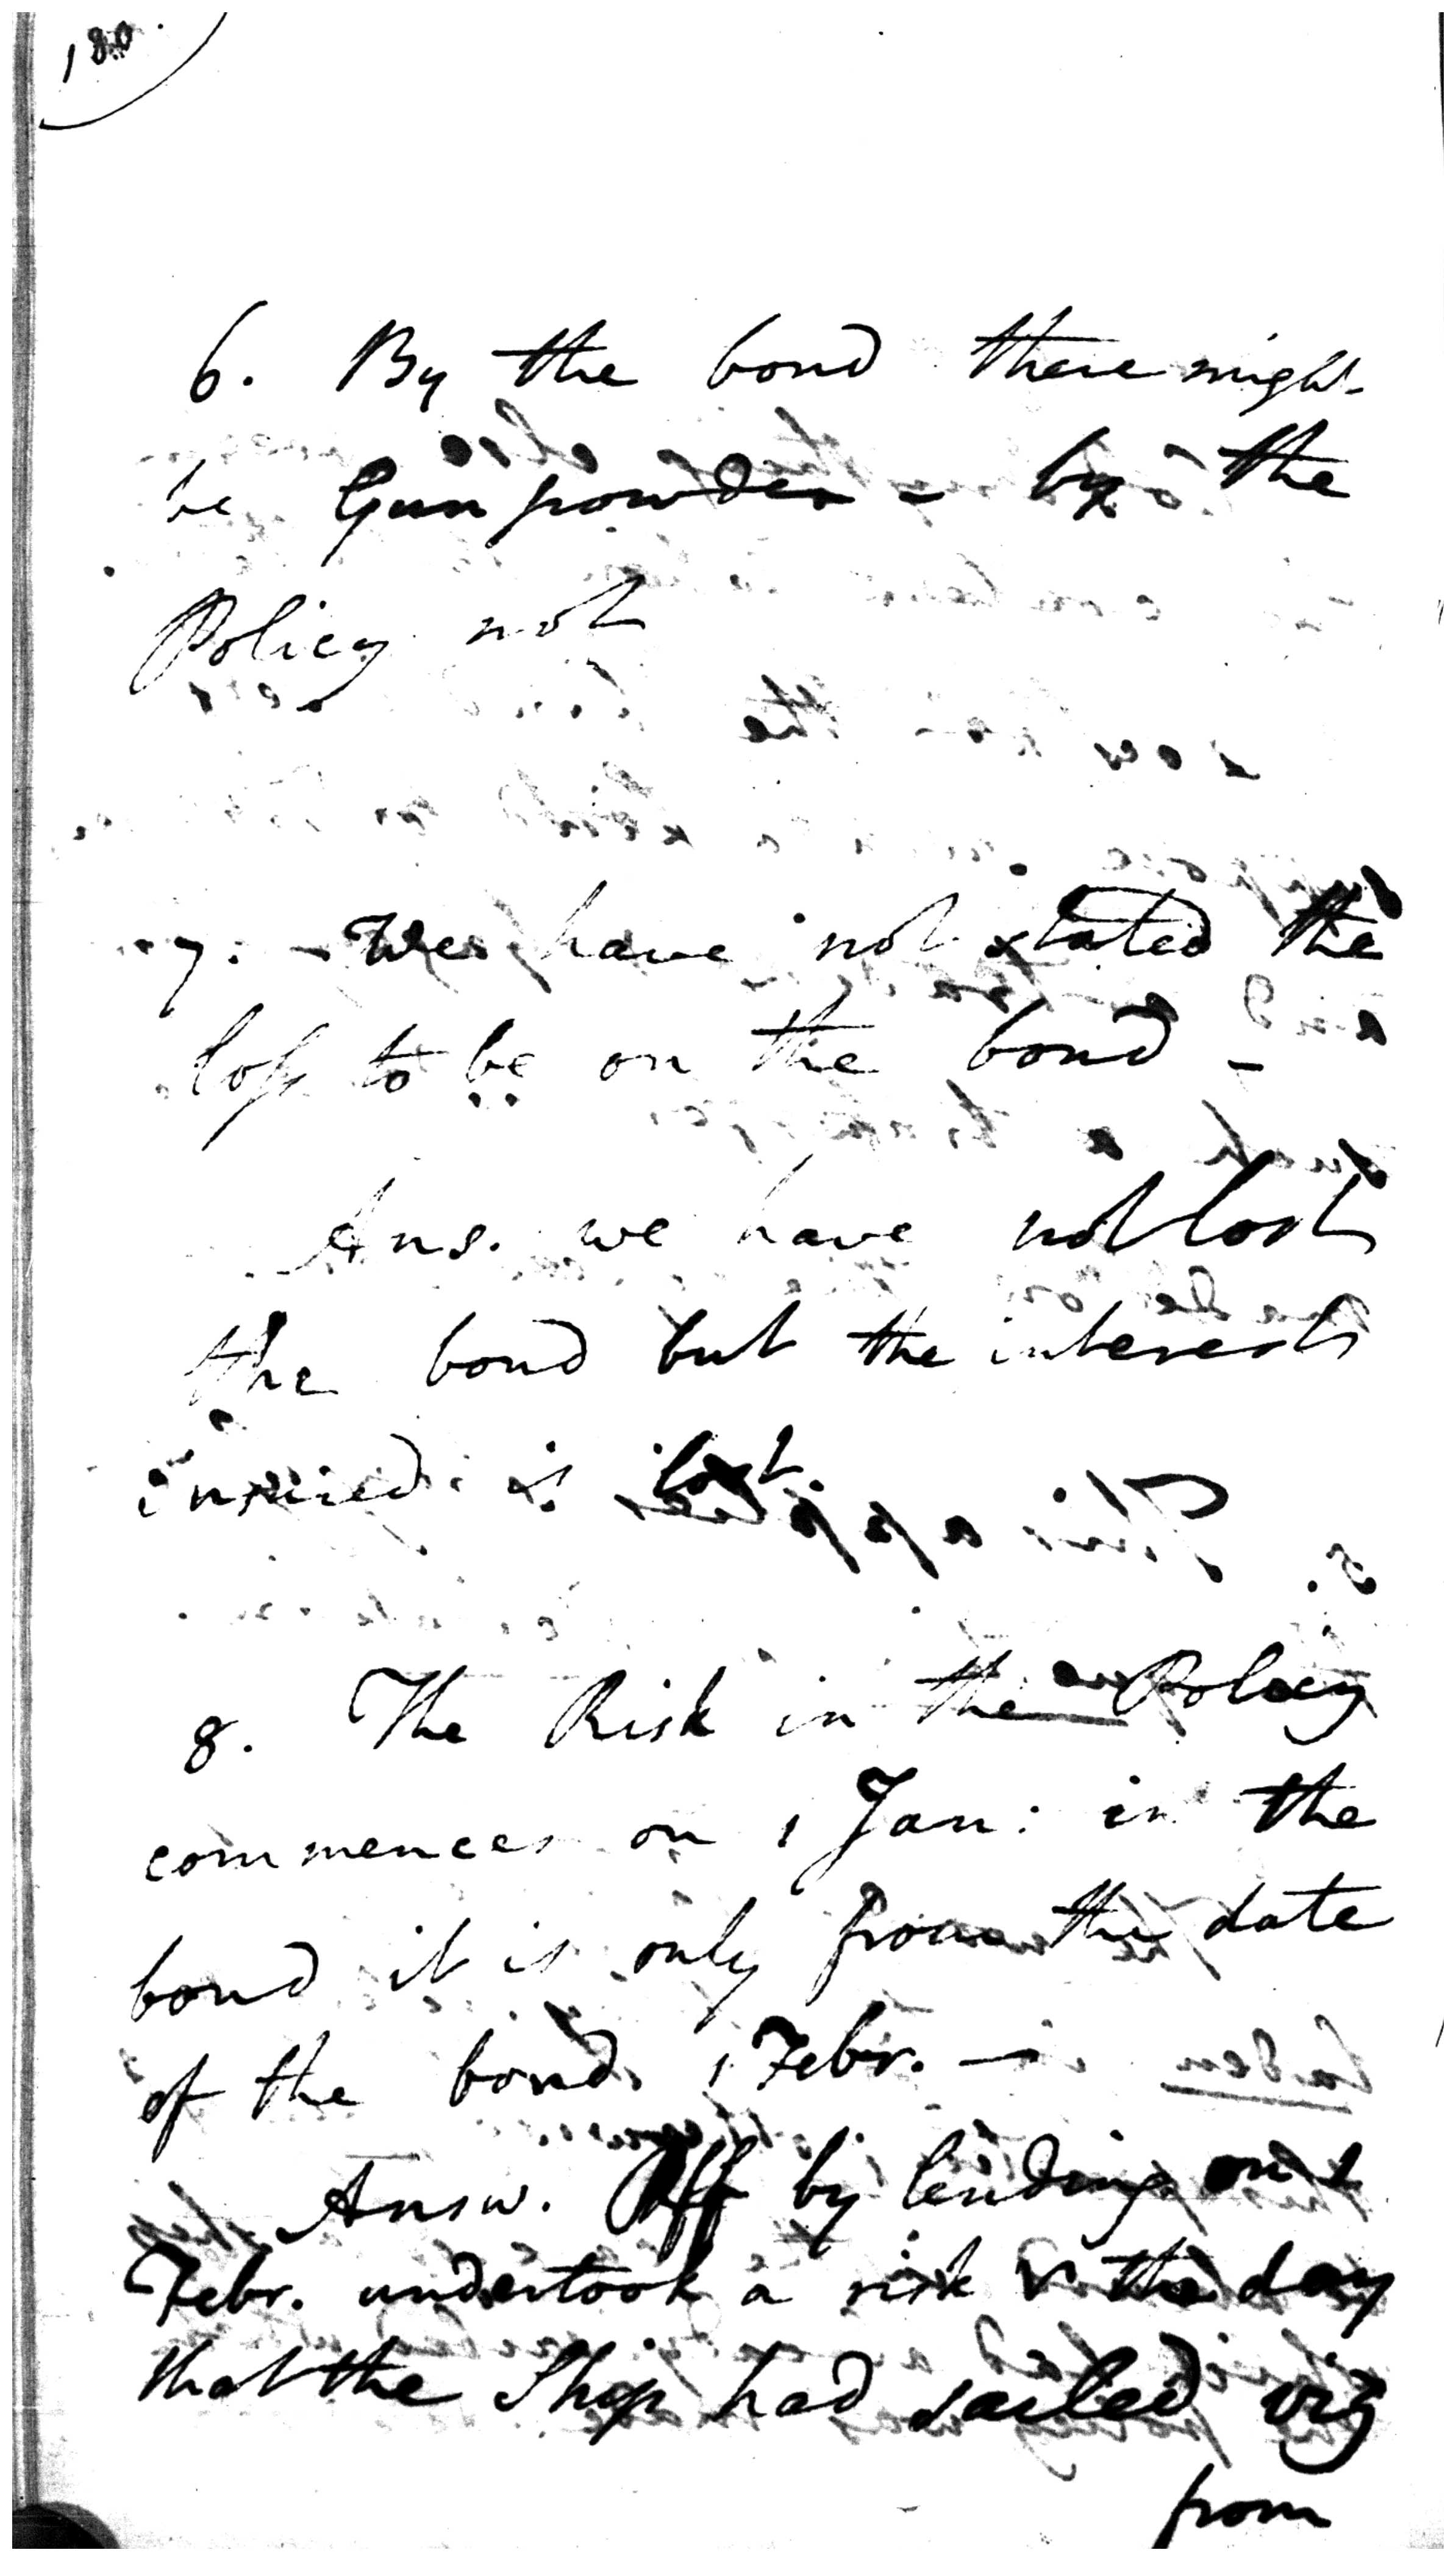 180.
6. By the bond there might
be Gunpowder - by the
Policy not
7. - We have not stated the
loss to be on the bond -
Ans. we have not lost
the bond but the interest
insured is lost.
8. The Risk in the Policy
commences on 1 Jan: in the
bond it is only from the date
of the bond. 1 Febr. —
Answ. Plff by lending on 1
Febr. undertook a risk the day
that the Ship had sailed viz
from